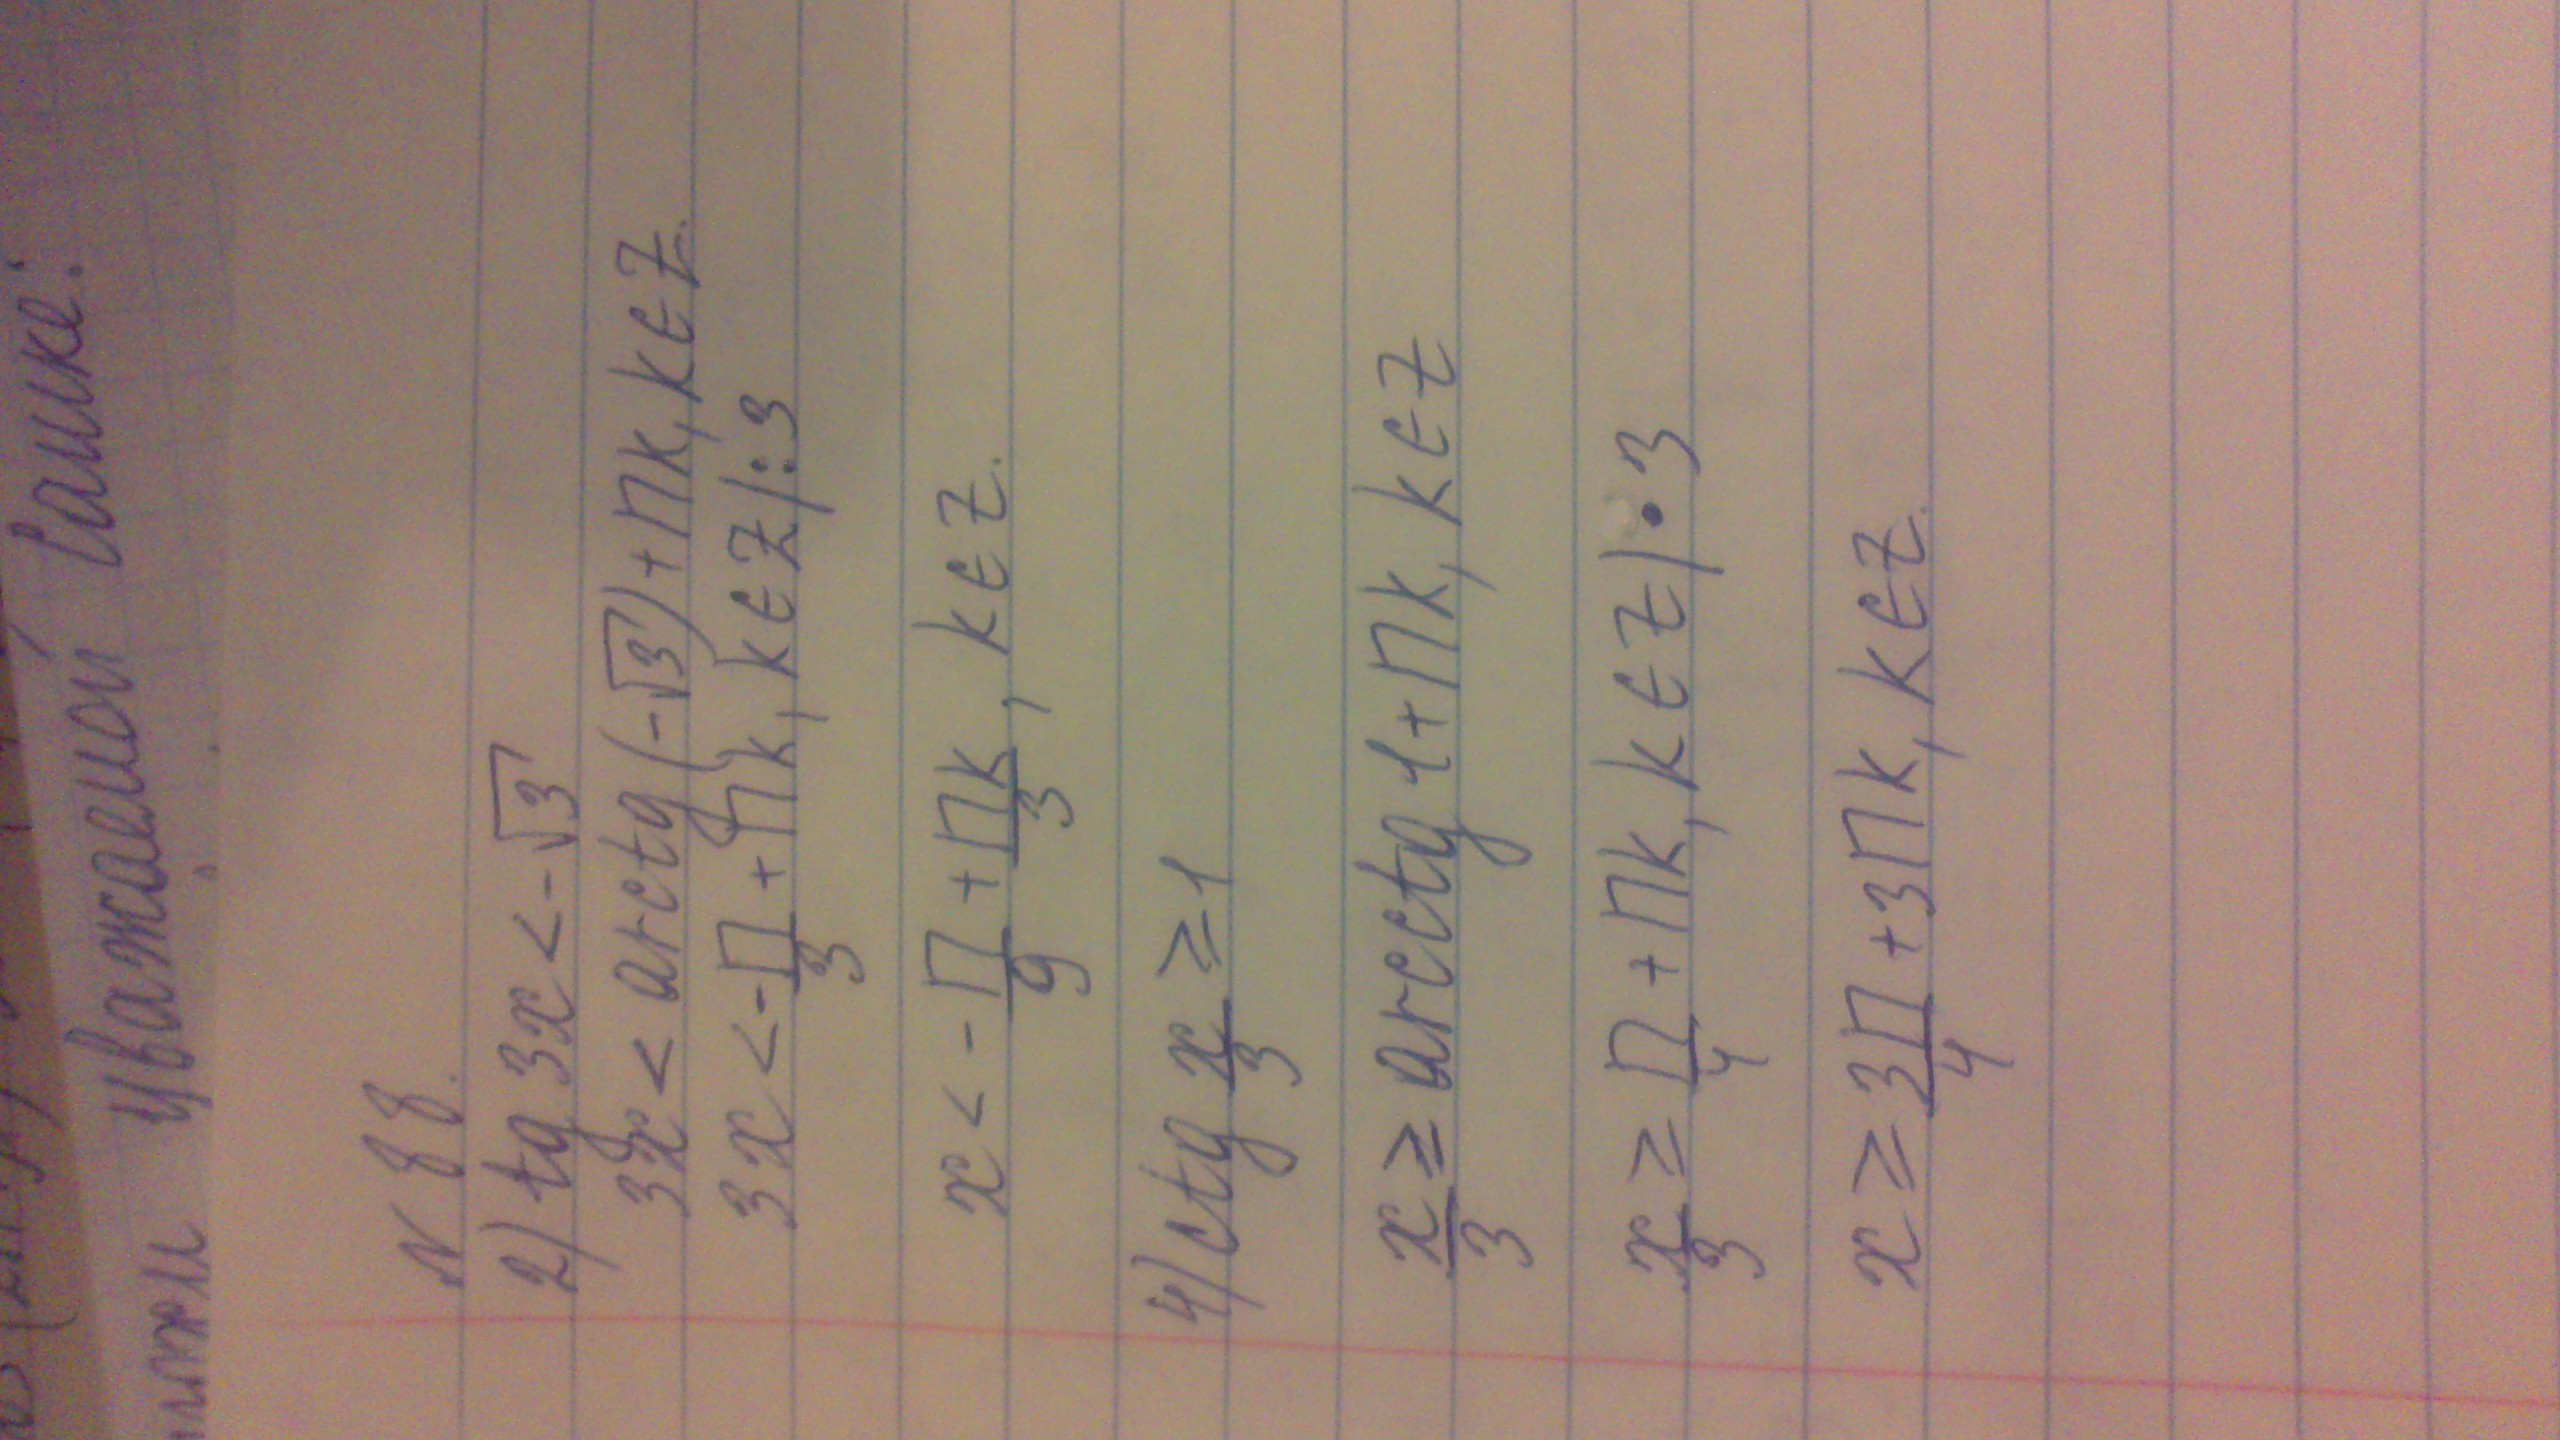 уважаемой Сашке:
N 88.
2) tg 3x < -√3
3x < arctg (-√3) + Пk, k ∈ Z.
3x < -П/3 + Пk, k ∈ Z |:3
x < -П/9 + Пk/3, k ∈ Z.
4) ctg x/3 ≥ 1
x/3 ≥ arcctg 1 + Пk, k ∈ Z
x/3 ≥ П/4 + Пk, k ∈ Z | • 3
x ≥ 3П/4 + 3Пk, k ∈ Z.